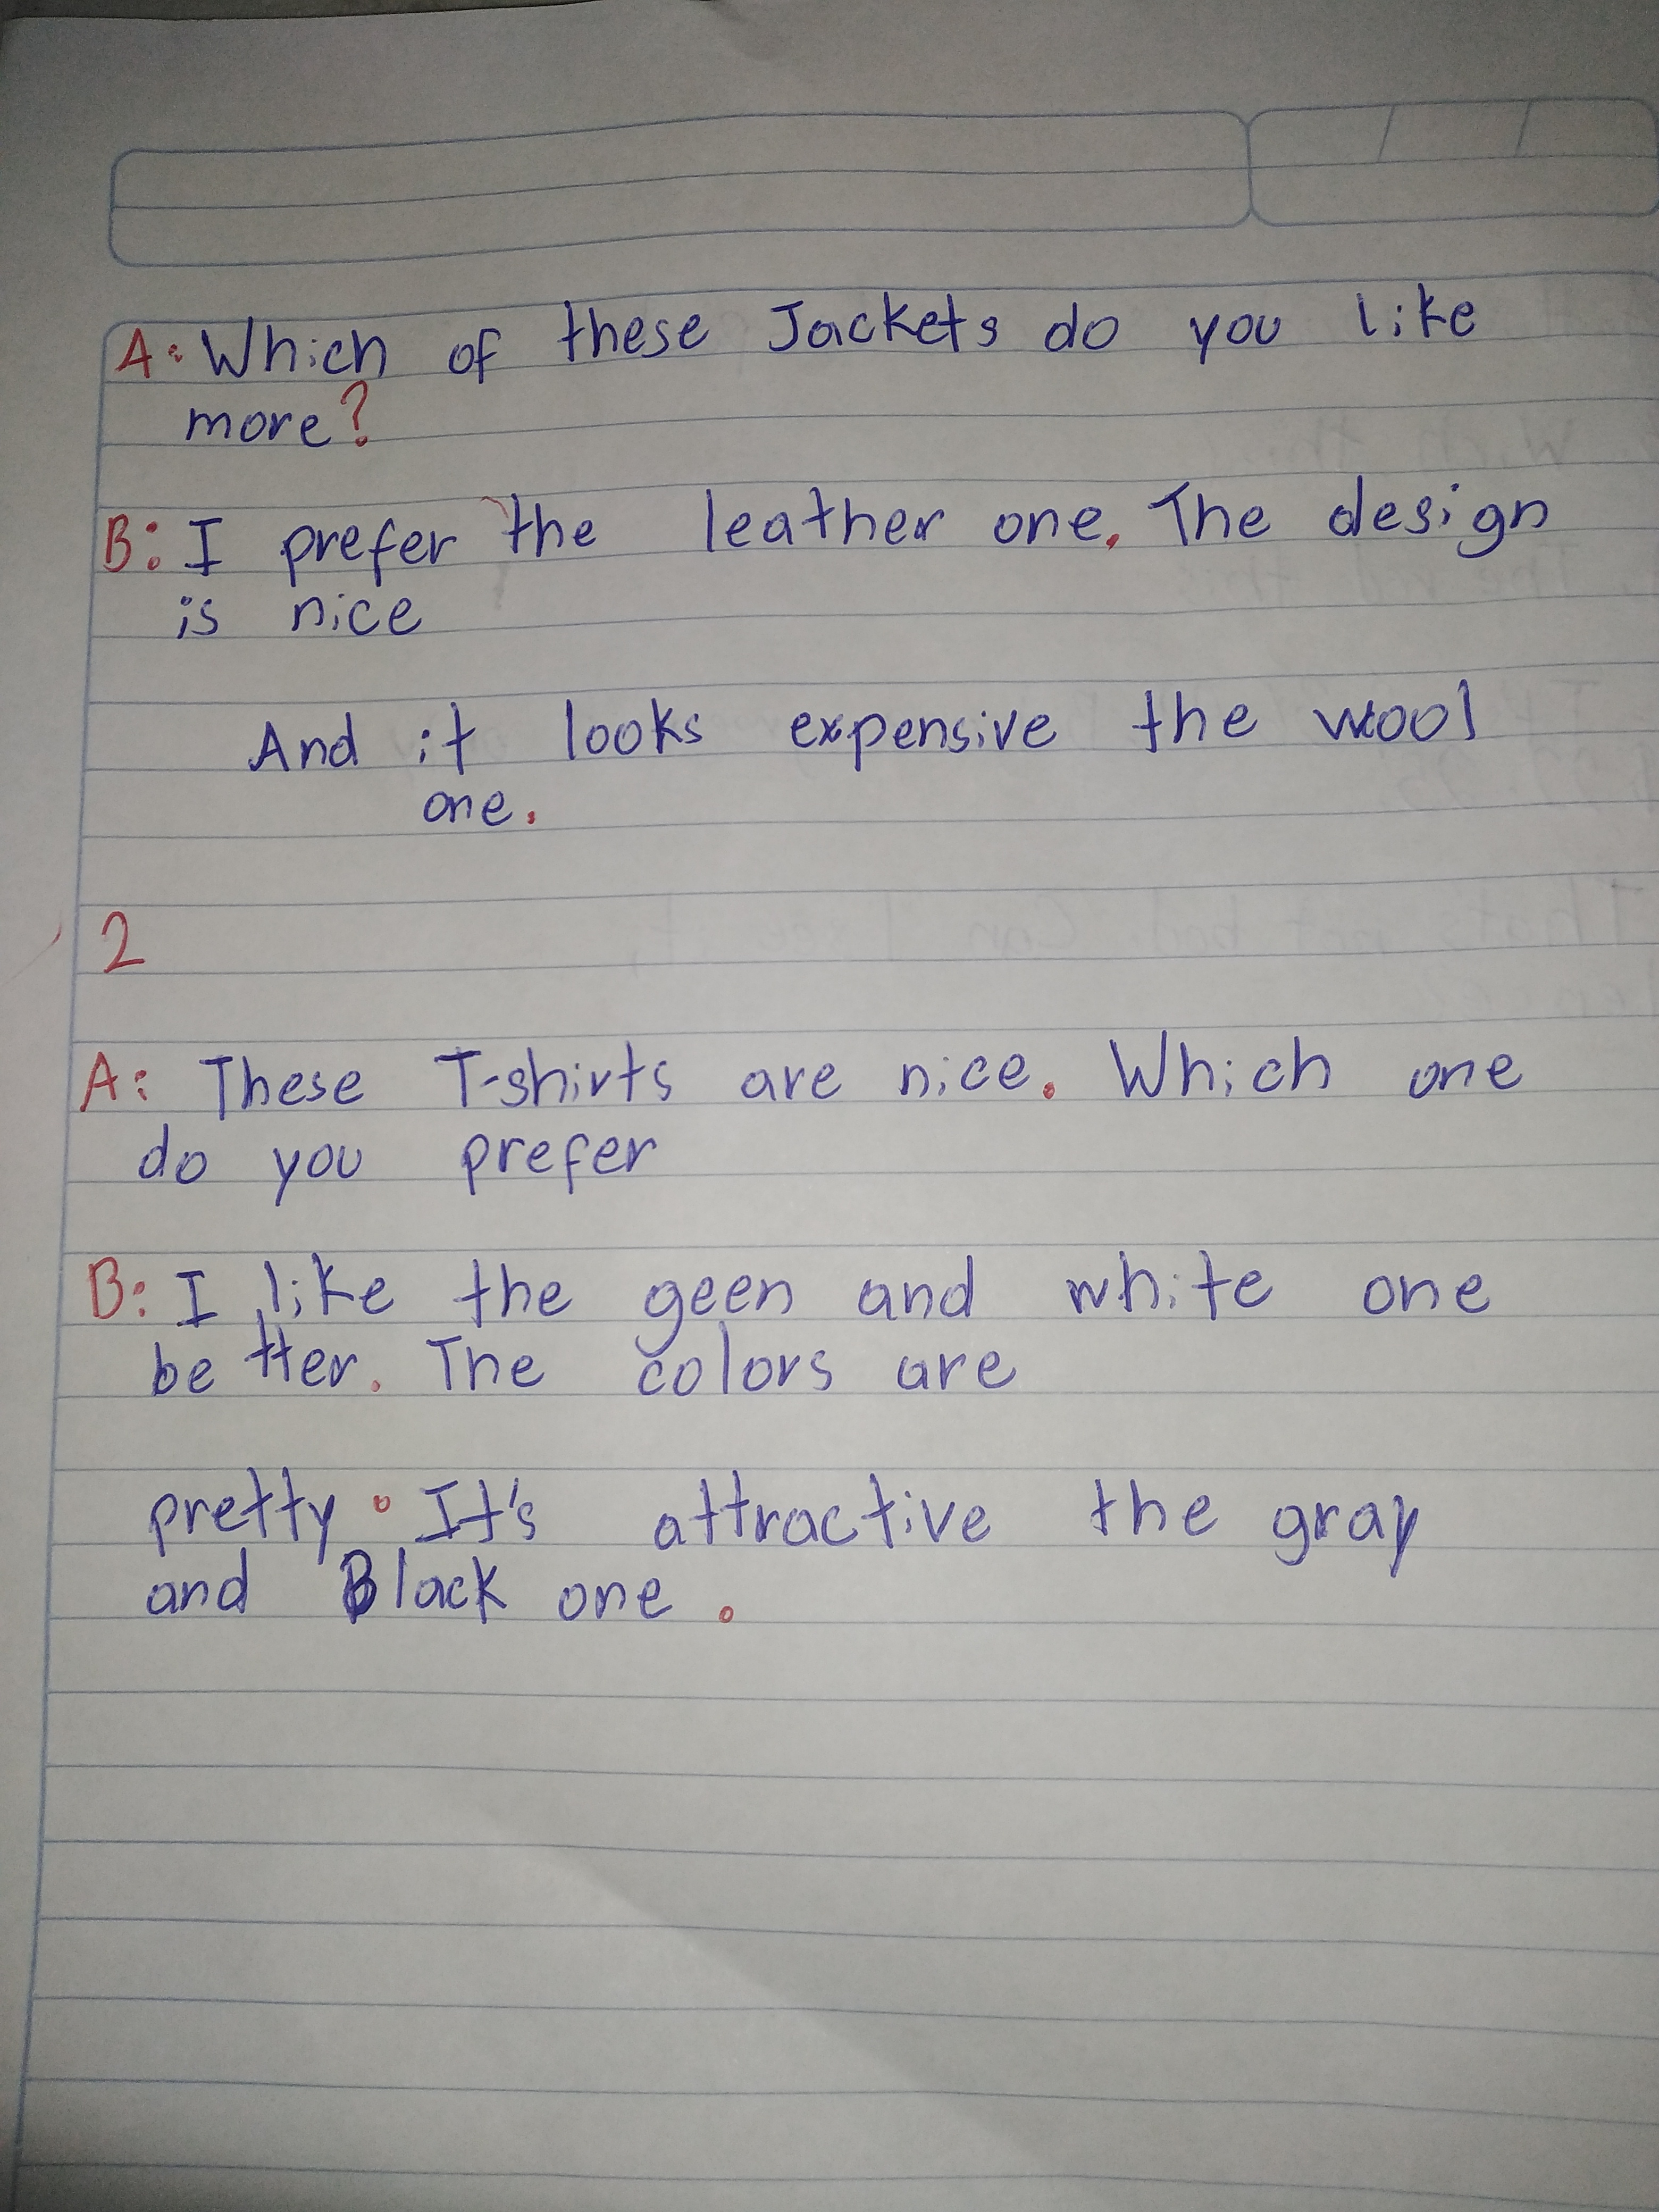 A: Which of these Jackets do you like
more?
B: I prefer the leather one. The design
is nice
And it looks expensive the wool
one.
2
A: These T-shirts are nice. Which one
do you prefer
B: I like the geen and white one
better. The colors are
pretty. It's attractive the gray
and Black one.